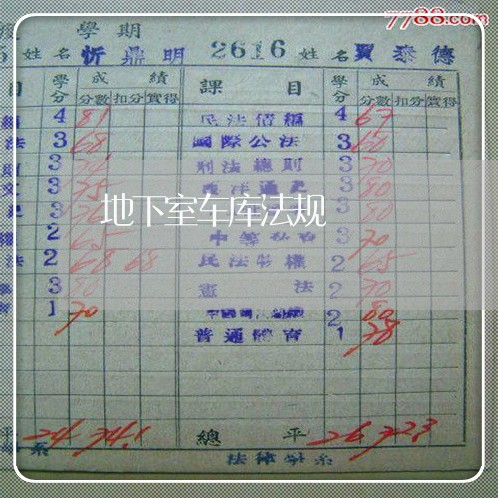 7788.com
學期
姓名 忻鼎明 2616 姓名 賈泰德
目 學分 成績 課目 學分 成績
分數 扣分 實得 分數 扣分 實得
4 81 民法債編 4 67
法 3 68 國際公法 3 60
3 刑法總則 3 70
3 75 3 80
3 3 80
地下室车库法规
2 65 3 70
法 2 68 68 民法物權 2 65
3 80 憲法 2 70
1 70 2 80
普通體育 1 78
平 24 74.1 總平 26 72.3
系 法律學系